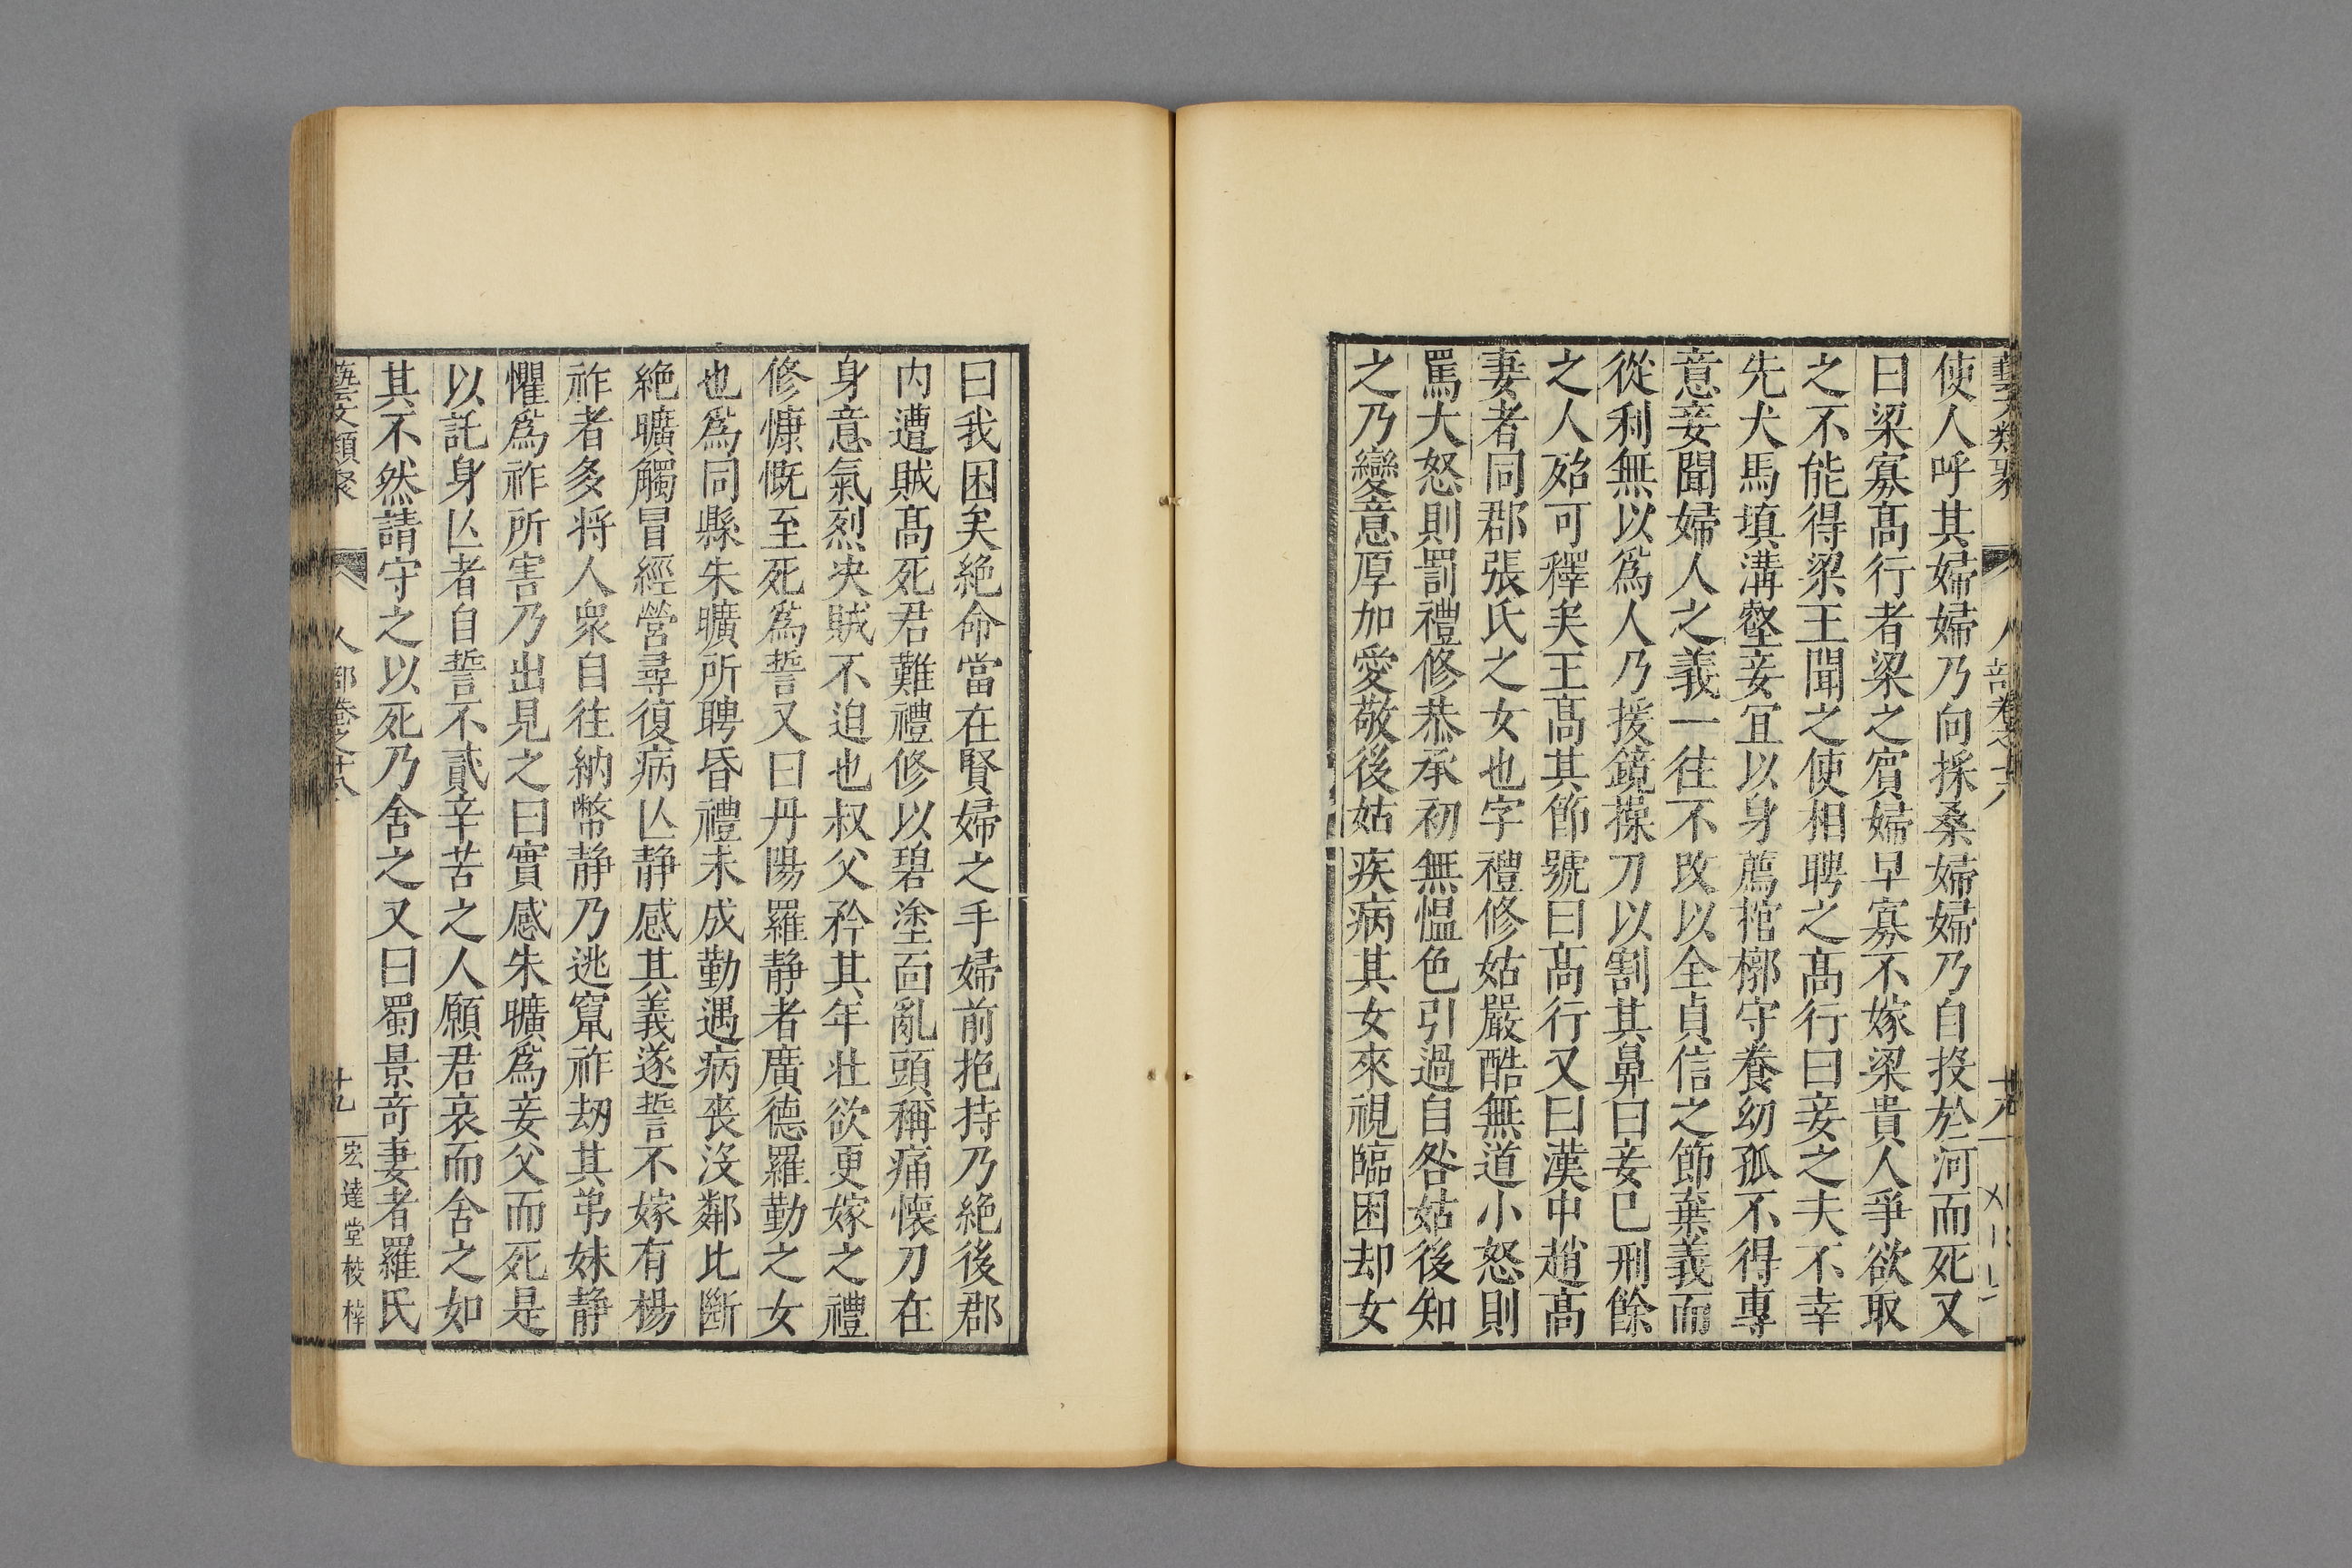 使人呼其婦婦乃向採桑婦婦乃自投於河而死又
曰梁寡髙行者梁之寡婦早寡不嫁梁貴人爭欲取
之不能得梁王聞之使相聘之髙行曰妾之夫不幸
先犬馬填溝壑妾宜以身薦棺槨守養幼孤不得專
意妾聞婦人之義一往不改以全貞信之節棄義而
從利無以爲人乃援鏡操刀以割其鼻曰妾已刑餘
之人殆可釋矣王髙其節號曰髙行又曰漢中趙髙
妻者同郡張氏之女也字禮修姑嚴酷無道小怒則
罵大怒則罰禮修恭承初無愠色引過自咎姑後知
之乃變意厚加愛敬後姑疾病其女來視臨困却女
曰我困矣絶命當在賢婦之手婦前抱持乃絶後郡
内遭賊髙死君難禮修以碧塗面亂頭稱痛懷刀在
身意氣烈决賊不迫也叔父矜其年壮欲更嫁之禮
修慷慨至死爲誓又曰丹陽羅静者廣德羅勤之女
也爲同縣朱曠所聘昏禮未成勤遇病喪没鄰比斷
絶曠觸冒經營尋復病亾静感其義遂誓不嫁有楊
祚者多将人衆自往納幣静乃逃竄祚刼其弟妹静
懼爲祚所害乃出見之曰實感朱曠爲妾父而死是
以託身亾者自誓不貳辛苦之人願君哀而舍之如
其不然請守之以死乃舍之又曰蜀景竒妻者羅氏
藝文類聚
人部卷之十八
十九
宏達堂校梓